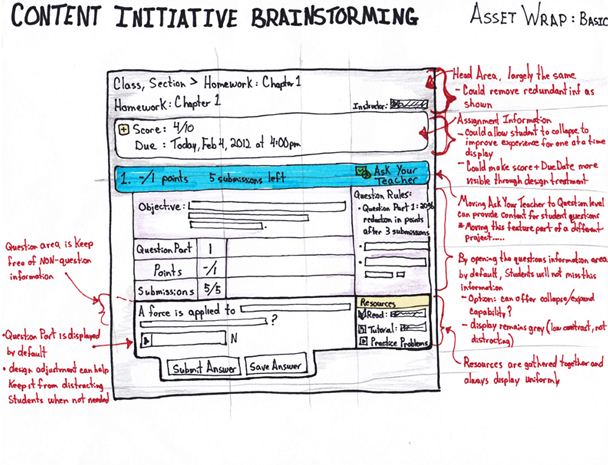 CONTENT INITIATIVE BRAINSTORMING
ASSET WRAP: BASIC
Class, Section > Homework: Chapter 1
Homework: Chapter 1
Instructor:
+ Score: 4/10
Due: Today, Feb 4, 2012 at 4:00pm
1. -/1 points 5 submissions left
Ask Your
Teacher
Objective:
Question Part 1
Points -/1
Submissions 5/5
Question Rules:
• Question Part 1: 20%
reduction in points
after 3 submissions
A force is applied to
?
N
Submit Answer
Save Answer
Resources
Read:
Tutorial:
Practice Problems
Head Area, largely the same
- Could remove redundant inf as
shown
Assignment Information
- Could allow student to collapse to
improve experience for one at a time
display
- Could make score + Due Date more
visible through design treatment
Moving Ask Your Teacher to Question level
can provide content for student questions
* Moving this feature part of a different
project.....
By opening the questions information area
by default, Students will not miss this
information
- Option: can offer collapse/expand
capability?
- display remains grey (low contrast, not
distracting)
Resources are gathered together and
always display uniformly
Question area, is Keep
free of NON-question
information
• Question Part is displayed
by default
• design adjustment can help
Keep it from distracting
Students when not needed